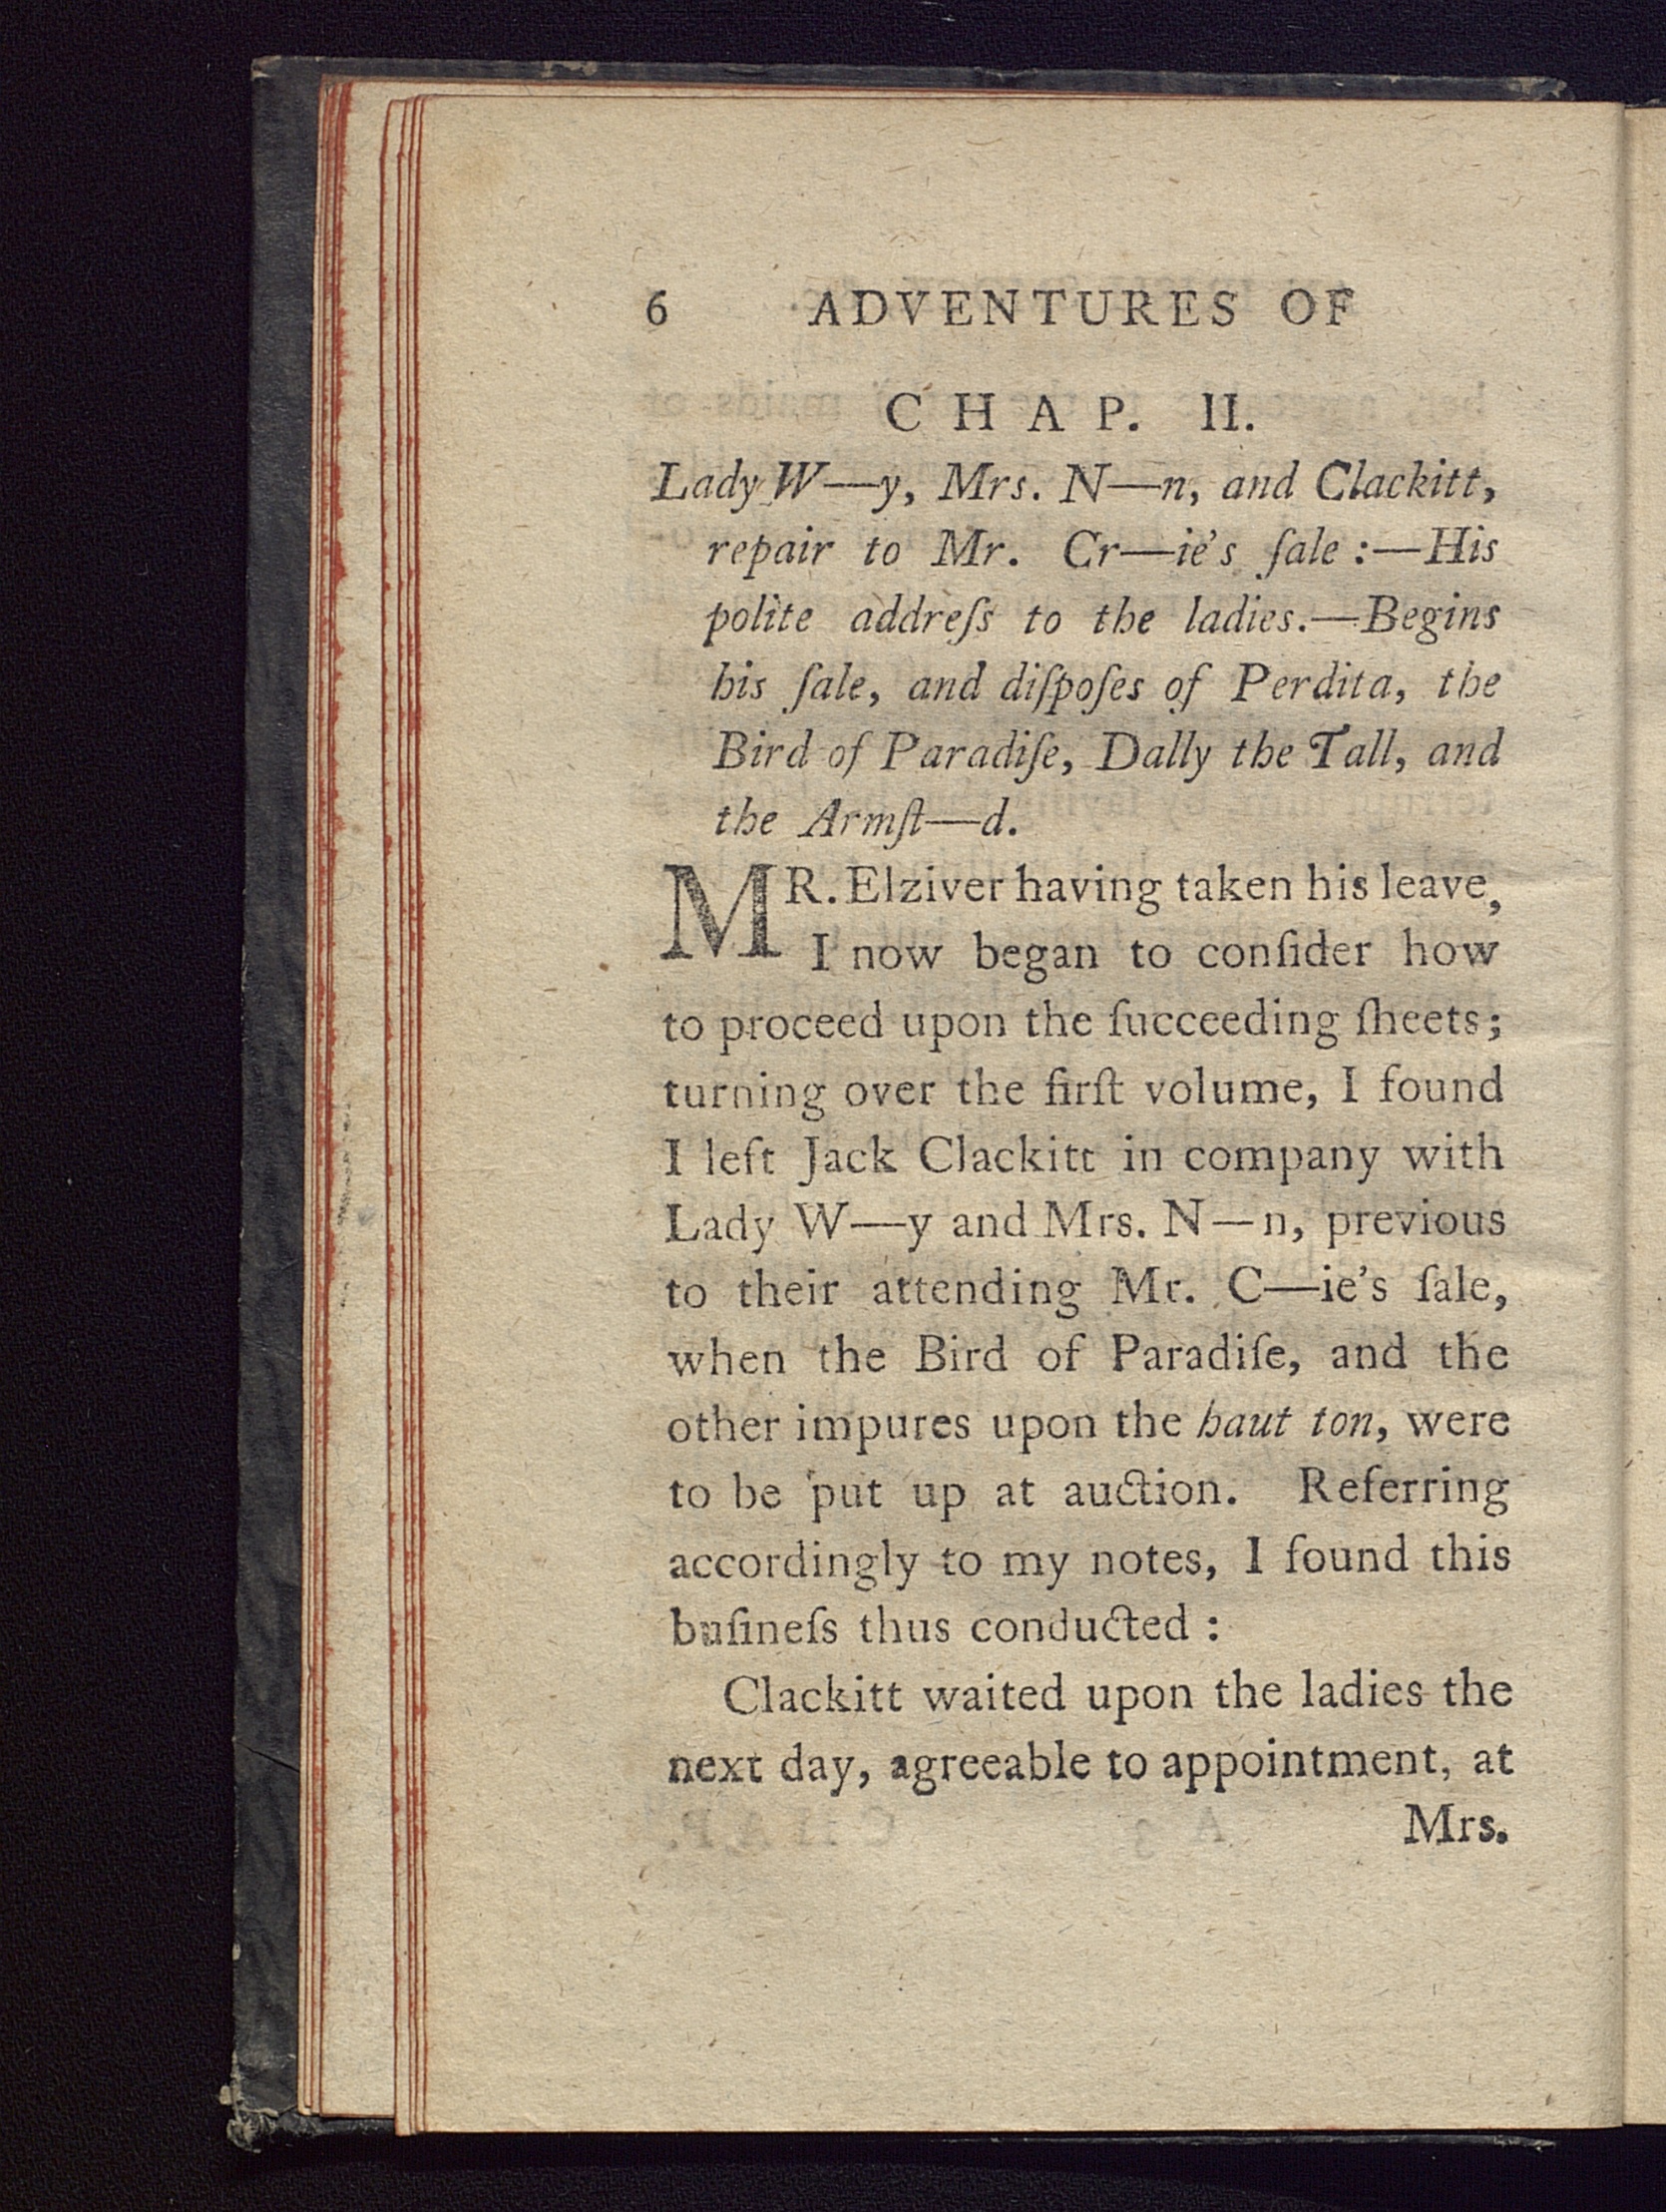 6 ADVENTURES OF
CHAP. II.
Lady W—y, Mrs. N—n, and Clackitt,
repair to Mr. Cr—ie's ſale :—His
polite addreſs to the ladies.—Begins
his ſale, and diſpoſes of Perdita, the
Bird of Paradiſe, Dally the Tall, and
the Armſt—d.
MR. Elziver having taken his leave,
I now began to conſider how
to proceed upon the ſucceeding ſheets;
turning over the firſt volume, I found
I left Jack Clackitt in company with
Lady W—y and Mrs. N—n, previous
to their attending Mr. C—ie's ſale,
when the Bird of Paradiſe, and the
other impures upon the haut ton, were
to be put up at auction. Referring
accordingly to my notes, I found this
buſineſs thus conducted :
Clackitt waited upon the ladies the
next day, agreeable to appointment, at
Mrs.